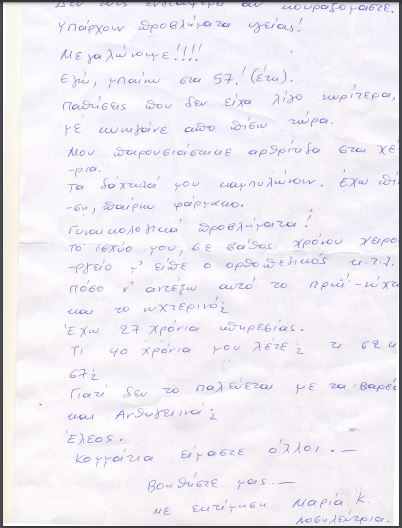 Δεν σας ενδιαφέρει αν κουραζόμαστε.
Υπάρχουν προβλήματα υγείας!
Μεγαλώνουμε!!!!
Εγώ, μπαίνω στα 57! (έτη).
Παθήσεις που δεν είχα λίγο νωρίτερα,
με κυνηγάνε από πίσω τώρα.
Μου παρουσιάστηκε αρθρίτιδα στα χέ
-ρια.
Τα δάχτυλά μου καμπυλώνουν. Έχω πίε
-ση, παίρνω φάρμακο.
Γυναικολογικά προβλήματα!
Το ισχύο μου, σε βάθος χρόνου χειρου
-ργείο μ' είπε ο ορθοπεδικός κ.τ.λ.
Πόσο ν' αντέξω αυτό το πρωί-νύχτα
και το νυχτερινό;
Έχω 27 χρόνια υπηρεσίας.
Τι 40 χρόνια μου λέτε; τι 62 κ
67;
Γιατί δεν το παλεύεται με τα βαρέα
και Ανθυγεινά;
Έλεος.
Κομμάτια είμαστε όλλοι.—
Βοηθήστε μας.—
Με εκτίμηση Μαρία Κ.
Νοσηλεύτρια.